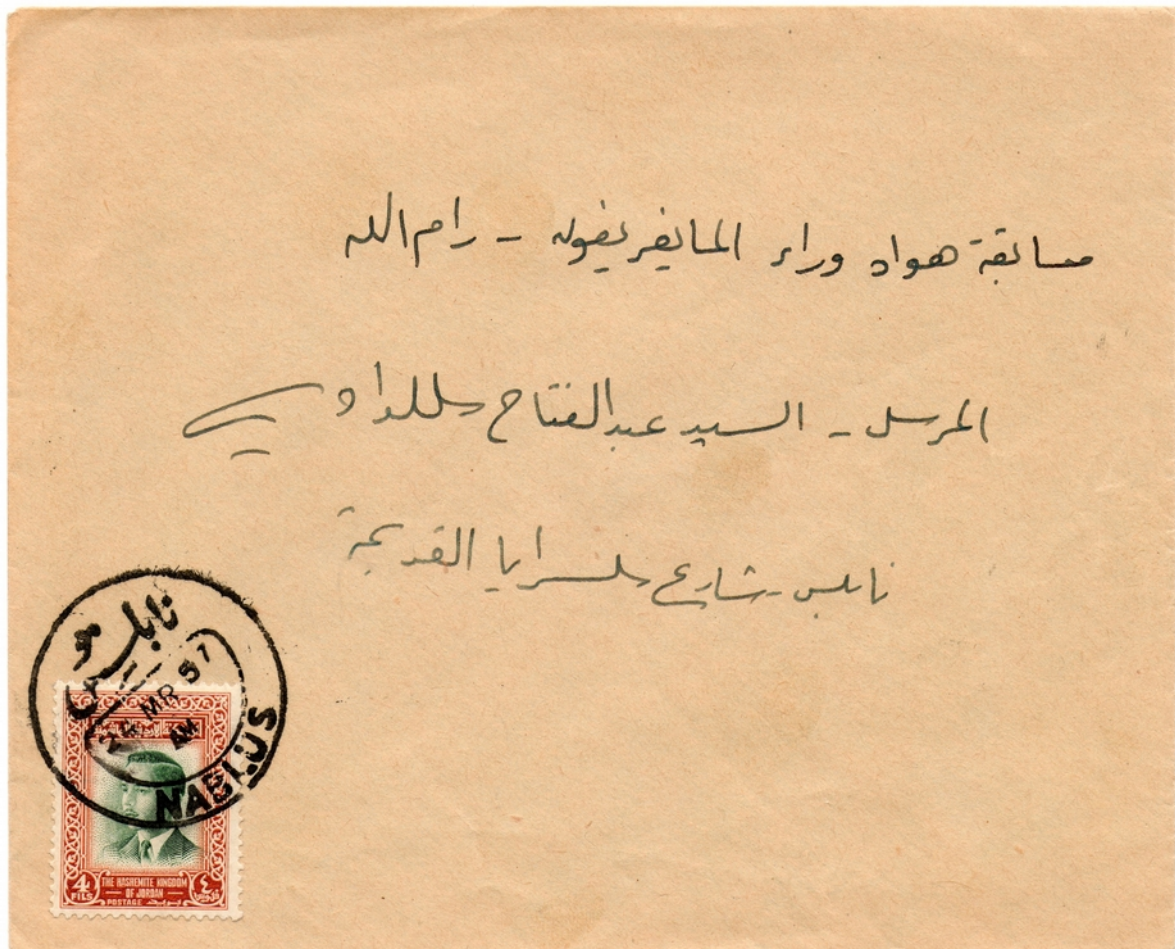 مسابقة هواه وراء المايفريفون - رام الله
المرسل - السيد عبد الفتاح
نابلس - شارع السرايا القديمة
نابلس
24 MR 57
AM
NABLUS
4
FILS
THE HASHEMITE KINGDOM
OF JORDAN
POSTAGE
٤